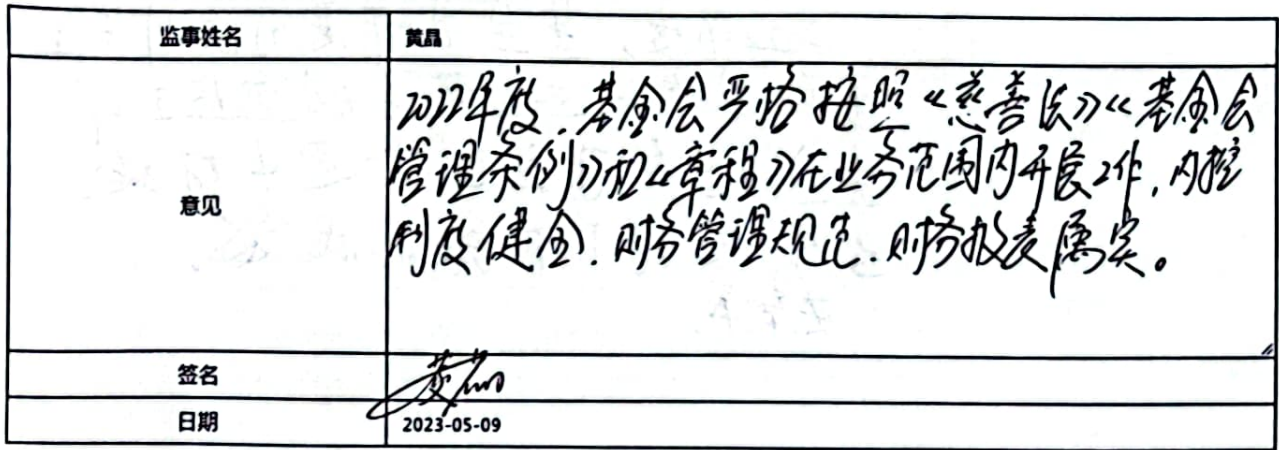 监事姓名 黄晶
意见
2022年度,基金会严格按照《慈善法》《基金会
管理条例》和《章程》在业务范围内开展工作,内控
制度健全,财务管理规范,财务报表属实。
签名 黄晶
日期 2023-05-09